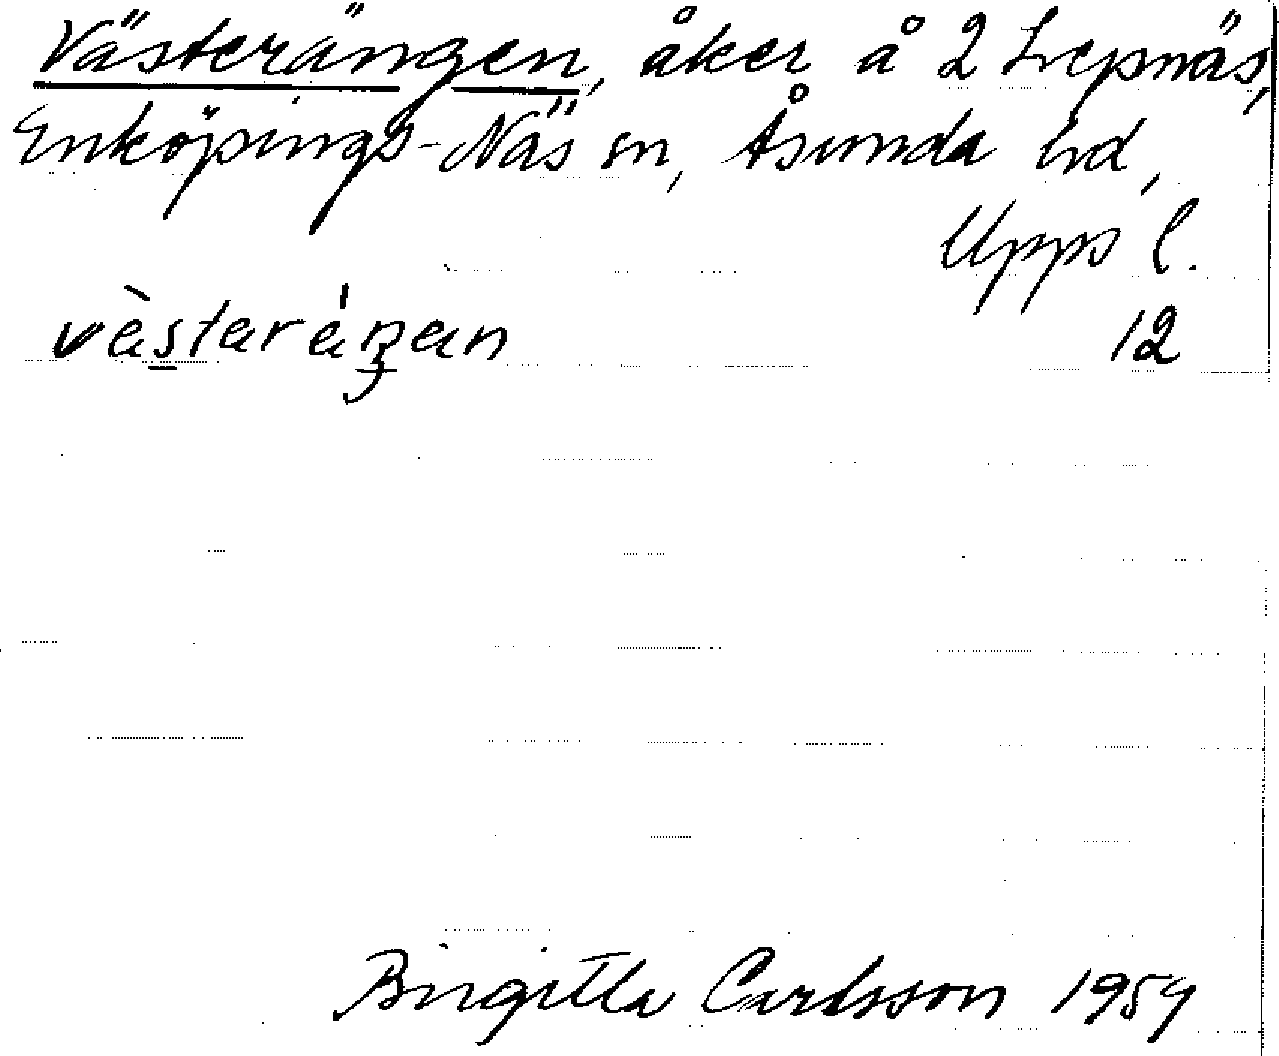 Västerängen, åker å 2 Lepnäs,
Enköpings-Näs sn, Åsunda hd,
Upps l.
vàstaráŋan 12
Birgitta Carlsson 1959